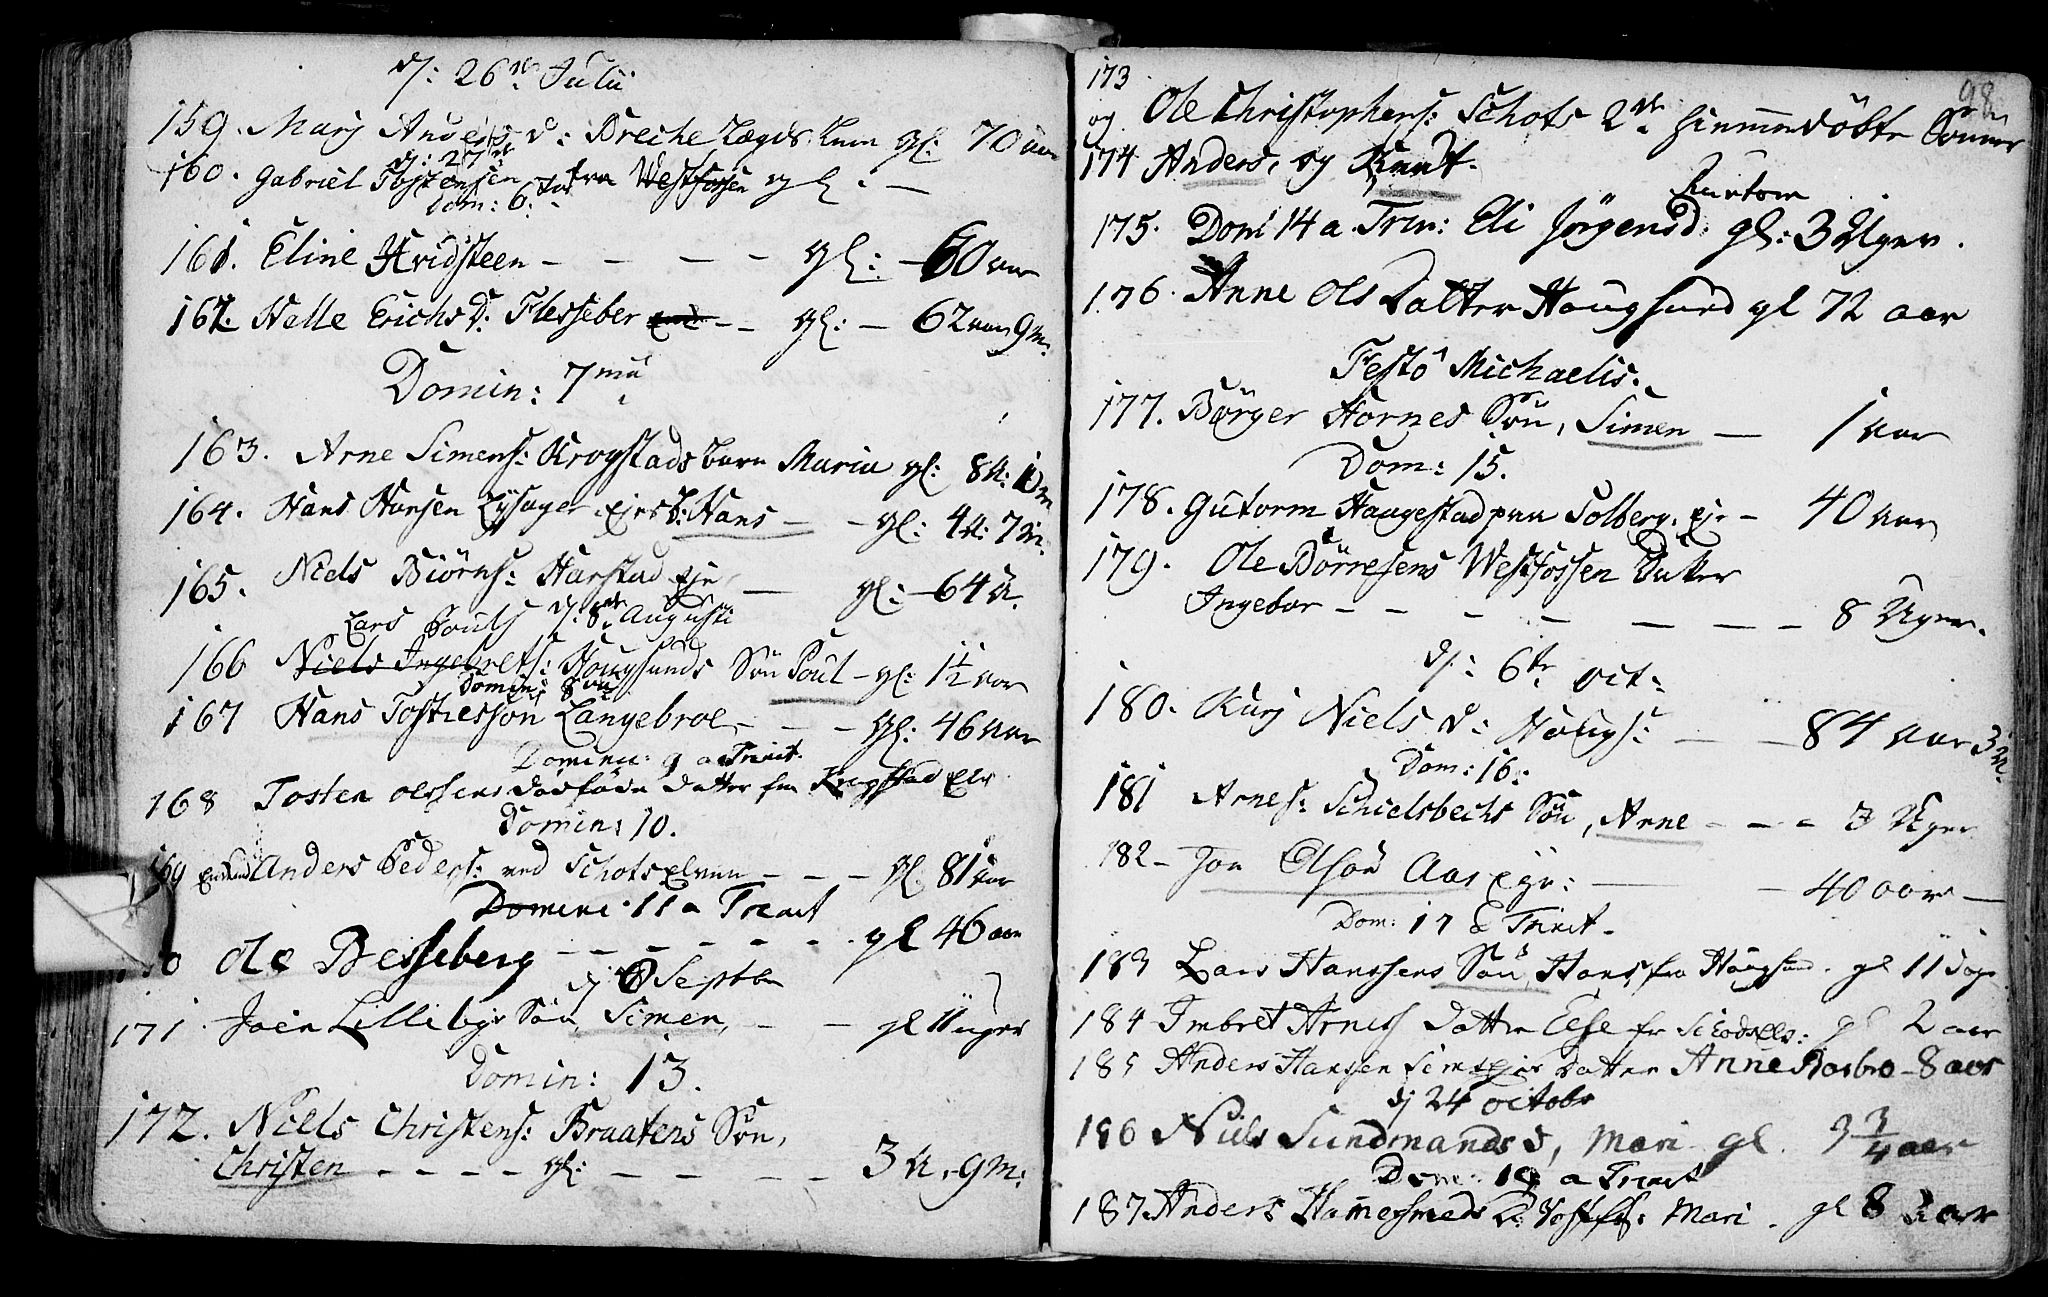 d: 26de Julii
159. Marj Anders d: Breche Lægds Lem gl: 70 aar
d: 27de
160. Gabriel Tostensen fra Westfossen gl: —
Dom: 6. Tr:
161. Eline Hvidsteen — — — — gl: — 60 aar
162. Helle Erichs D: Flesseber — — gl: — 62 aar 9 m:
Domin: 7ma
163. Arne Simens: Krogstads barn Maria gl: 8 u: 10 m
164. Hans Hansen Lysager Ejes S: Hans — — gl: 4 u: 7 m.
165. Niels Biörns: Harstad Eje — gl: — 64 a.
d: 8de Augusti
Lars Pouls
166 Niels Ingebrets: Hougsunds Sön Poul — gl: 1½ aar
Domin: 8va
167 Hans Tostessön Langebroe — — — gl: 46 aar
Domin: 9 a Trinit.
168 Tosten Olssens dödföde datter fra Krogstad Elv
Domin: 10.
169 Enkemd Anders Peders: ved Schots Elven — — — gl: 81 aar
Domin: 11 a Trinit
170 Ole Besseberg — — — — — — gl 46 aar
d 8 Septbr
171. Joen Lillebys Sön, Simen, — — gl 11 uger
Domin: 13.
172. Niels Christens: Braatens Sön,
Christen — — — — gl: — — — — 3 a, 9 m:
98
173
og Ole Christophers: Schots 2de hiemmedöbte Sönner
174 Anders, og Knut.
175. Dom 14 a Trin: Eli Jörgensd. gl: 3 Uger.
176. Anne Ols Datter Hougsund gl 72 aar
Festo Michaelis.
177. Börger Hornes Sön, Simen — 1 aar
Dom: 15.
178. Gutorm Haugestad paa Solberg. Eje — 40 aar
179. Ole Börresens Westfossen Datter
Ingebor — — — — — — — 8 Uger.
d: 6te oct:
180. Karj Niels d: Hougs: — — 84 aar 3 m.
Dom: 16:
181 Arnes: Schielsbechs Sön, Arne — — — 3 Uger
182 — Jon Olsön Aas Eje: — — 40 aar —
Dom: 17 a Trinit.
183 Lars Hanssens Sön, Hans, fra Hougsund. gl 11 dage
184 Imbret Arness datter Else fr Schodselv: gl 2 aar
185 Anders Hansen Semsejes datter Anne Barbro — 8 aar
d 24 octobr
186 Niels Sundmands d, Mari gl. 3 ¾ aar
Dom: 18 a Trinit
187 Anders Hamersmeds D: Vestfs: Mari. gl 8 aar